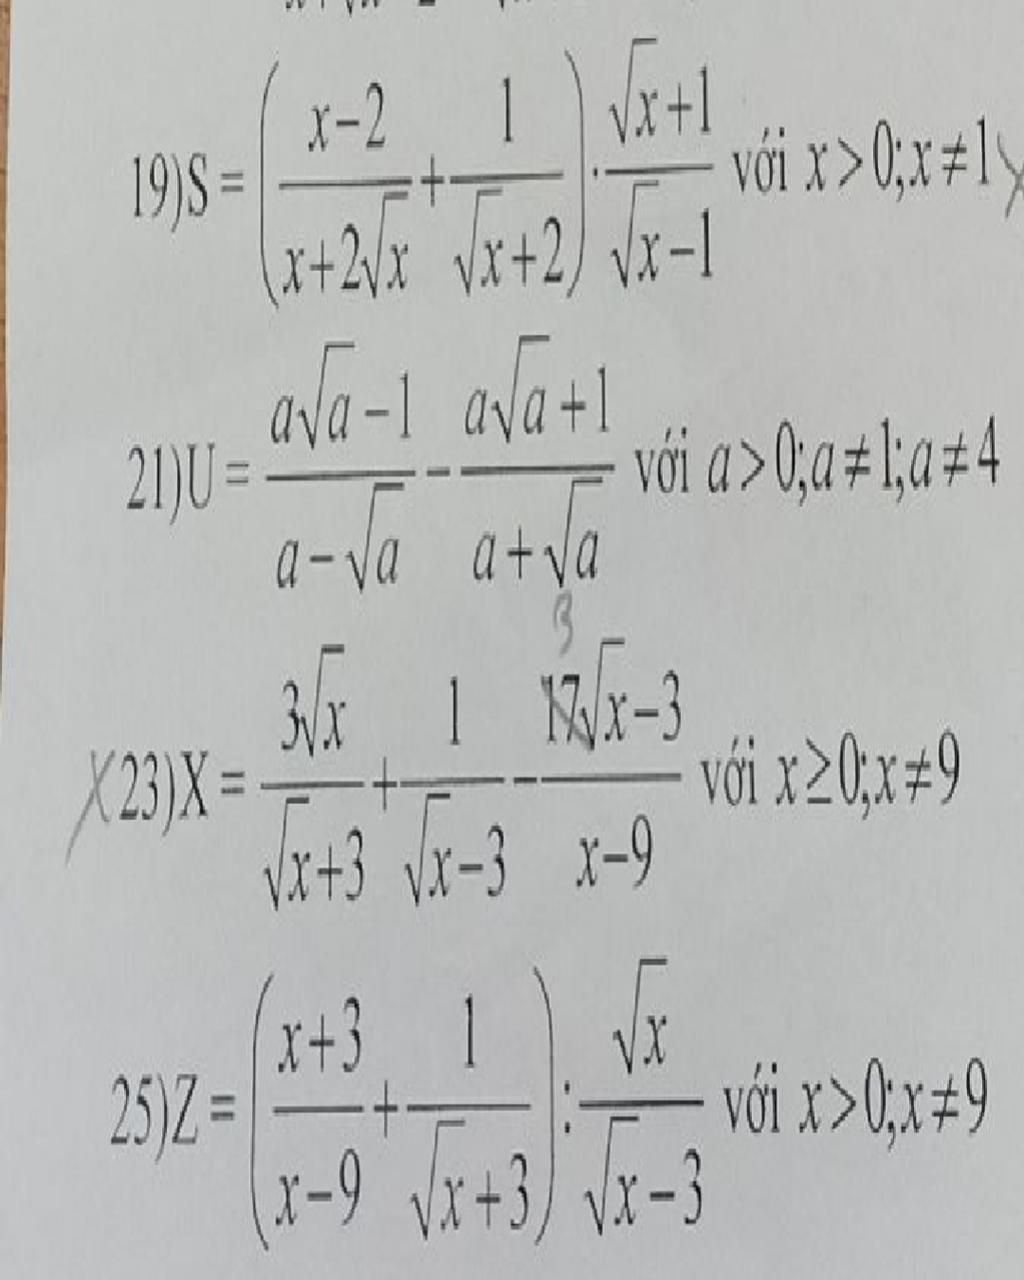 19)S = ( (x-2)/(x+2√x) + 1/(√x+2) ) . (√x+1)/(√x-1) với x > 0; x ≠ 1
21)U = (a√a-1)/(a-√a) - (a√a+1)/(a+√a) với a > 0; a ≠ 1; a ≠ 4
3
X 23)X = 3√x/(√x+3) + 1/(√x-3) - (17√x-3)/(x-9) với x ≥ 0; x ≠ 9
25)Z = ( (x+3)/(x-9) + 1/(√x+3) ) : √x/(√x-3) với x > 0; x ≠ 9